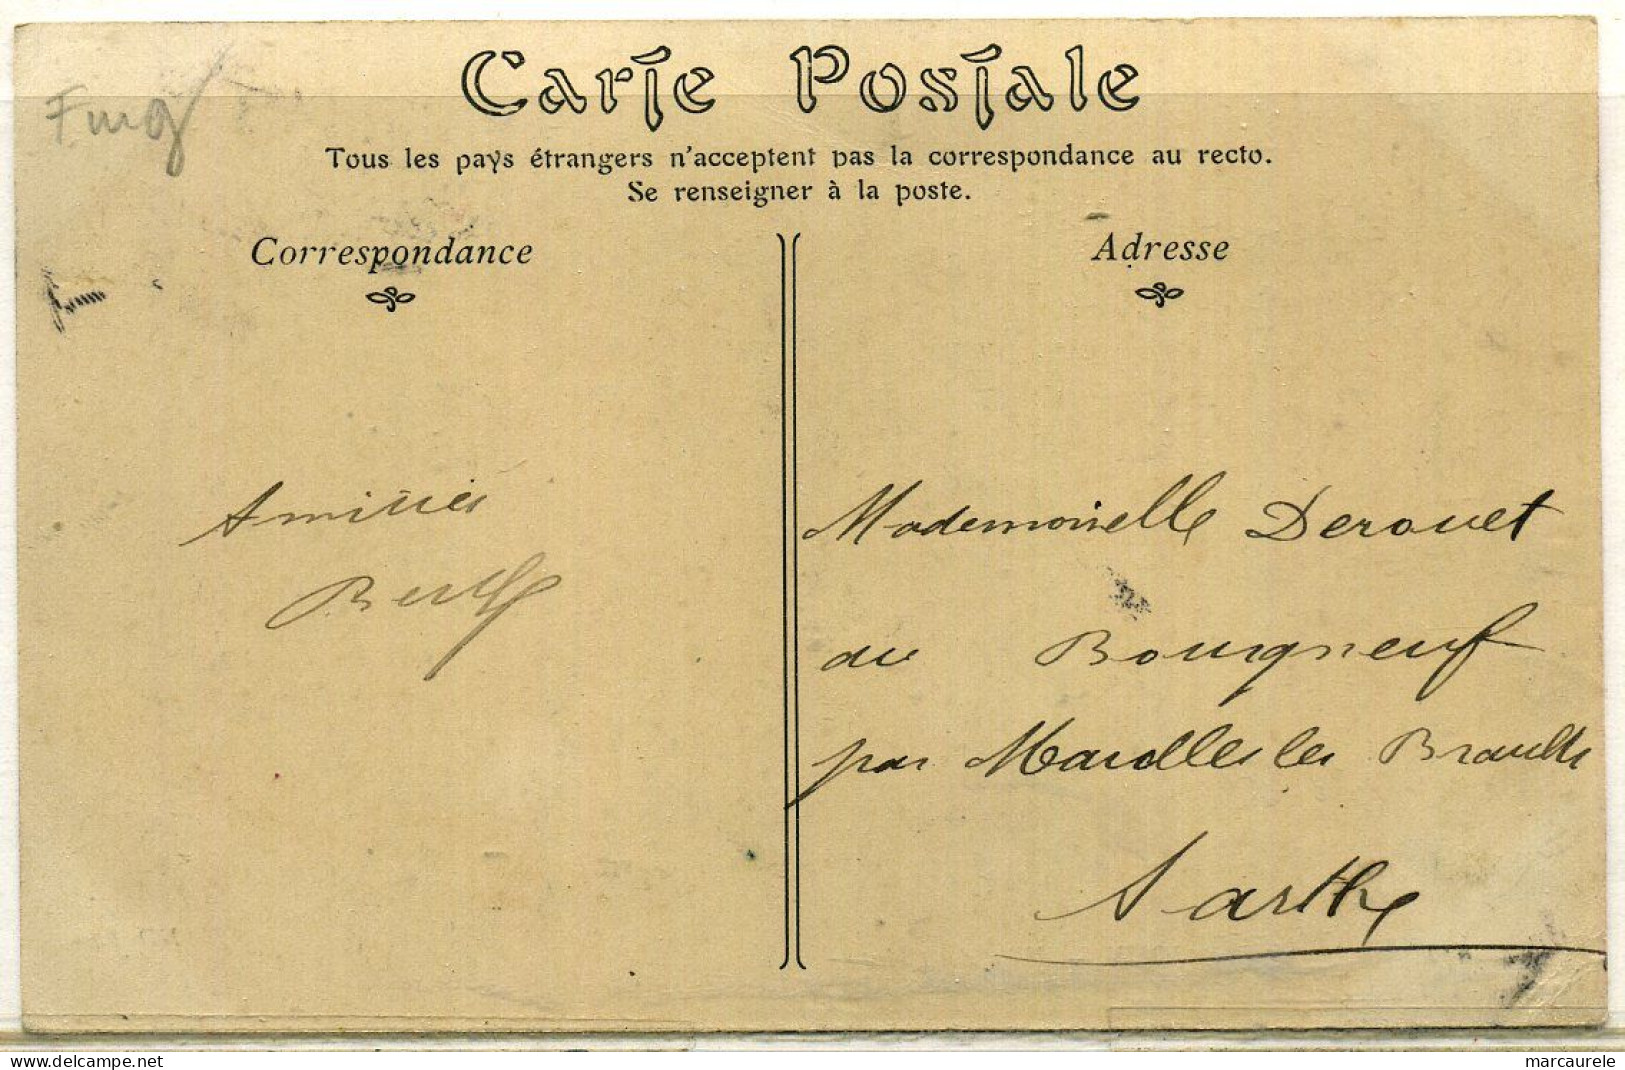 Carte Postale
Tous les pays étrangers n'acceptent pas la correspondance au recto.
Se renseigner à la poste.
Correspondance
Adresse
Amitiés
Berthe
Mademoiselle Derouet
du Bourgneuf
par Marolles les Braults
Sarthe
delcampe.net
marcaurele